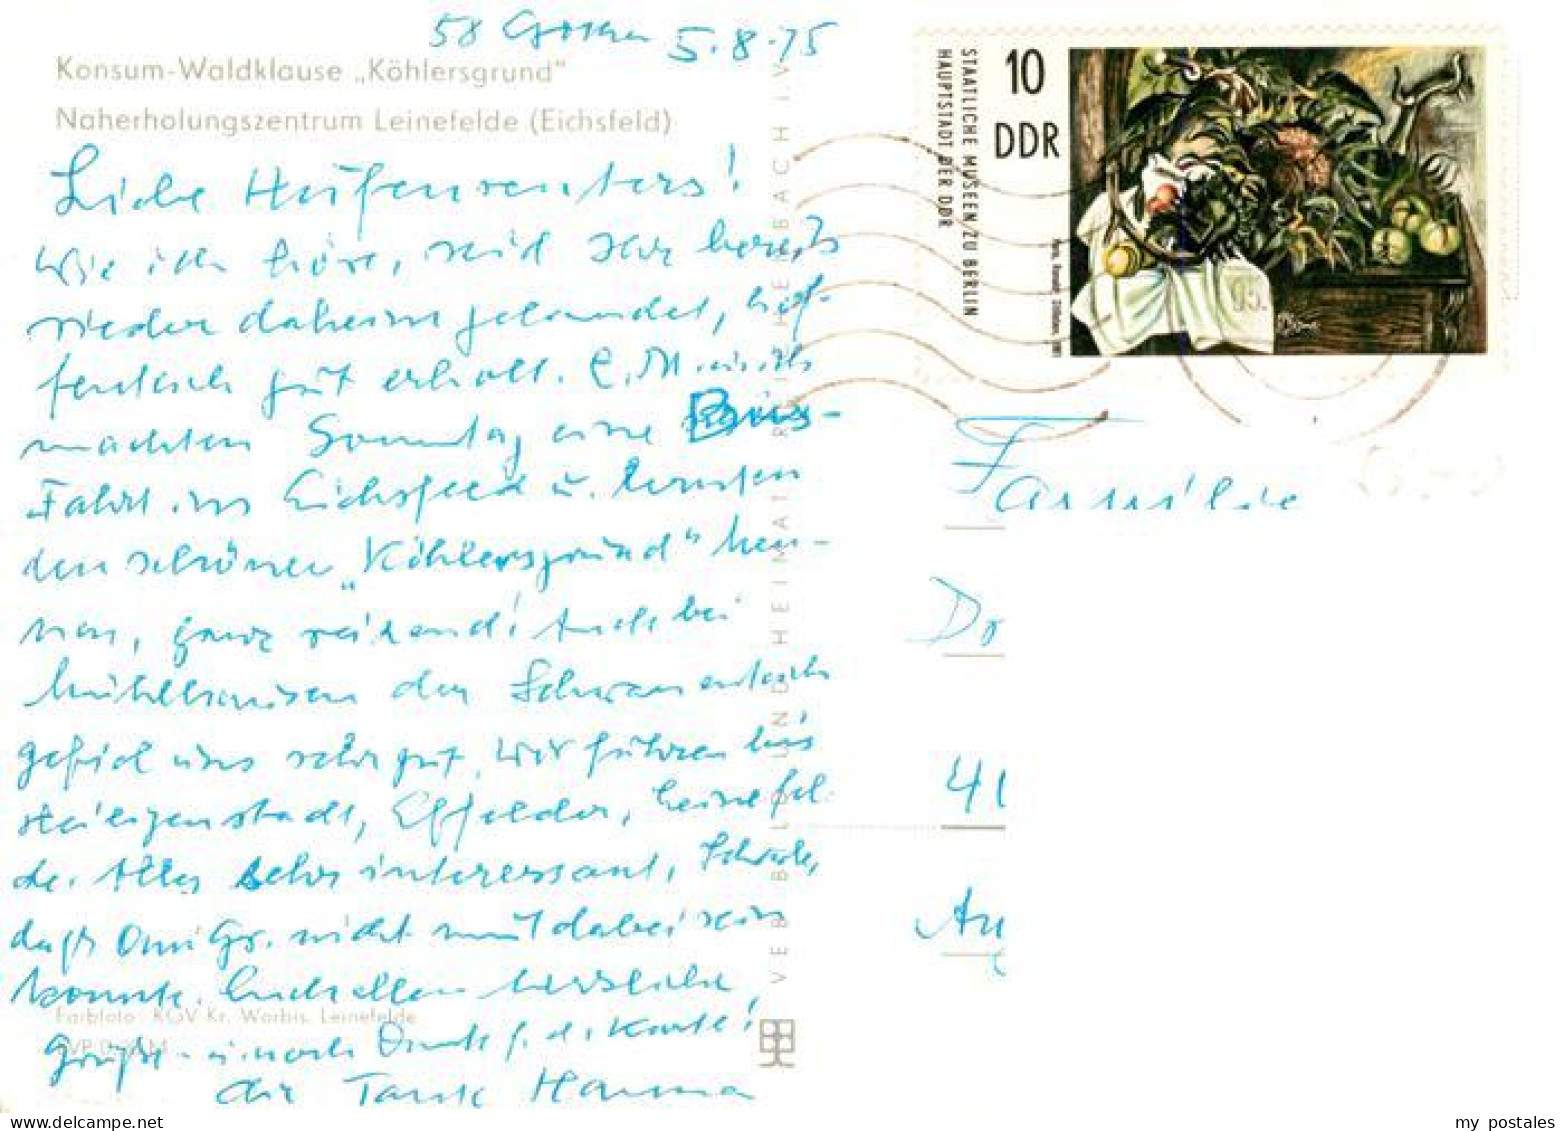 58 Gotha 5.8.75
Konsum-Waldklause „Köhlersgrund"
Naherholungszentrum Leinefelde (Eichsfeld)
Liebe
Wie ich höre, seid Ihr bereits
wieder daheim gelandet, hof-
fentlich gut erholt. E. M. u. ich
machten Sonntag eine Bus-
Fahrt ins Eichsfeld u. lernten
den schönen „Köhlersgrund" ken-
nen, ganz reizend! Auch bei
Mühlhausen der Schwanenteich
gefiel uns sehr gut. Wir fuhren bis
Heiligenstadt, Effelder, Leinefel-
de. Alles sehr interessant. Schade,
daß Omi Gr. nicht mit dabei sein
konnte. Euch allen herzliche
Grüße u. noch Dank f. d. Karte!
die Tante Hanna
Farbfoto: KGV Kr. Worbis, Leinefelde
VEB BILD UND HEIMAT REICHENBACH I. V.
10
DDR
STAATLICHE MUSEEN ZU BERLIN
HAUPTSTADT DER DDR
95.
Familie
Dr
4
Au
my postales